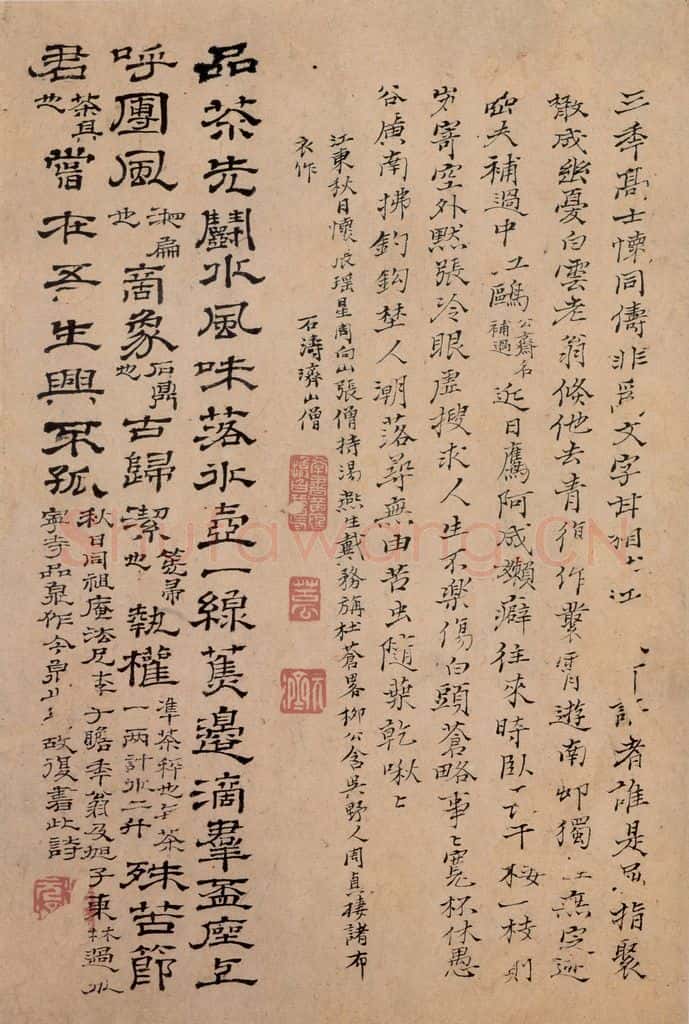 三年高士懷同儔非爲文字甘相江丁計者誰是孟指聚
散成幽憂白雲老翁倏他去青狥作叢霄遊南邨獨無定迹
幽夫補過中江鷗公齋名補過近日鷹阿咸嬾癖往來時臥千梅一枝則
岁寄空外默張冷眼虛搜求人生不樂傷白頭蒼略事々寬杯休愚
谷廣南拂釣鈎埜人潮落尋無由苦虫隨葉乾啾々
江東秋日懷張瑶星周向山張僧持湯燕生戴務旃杜蒼畧柳公含吳野人周貞棲諸布
衣作
石濤濟山僧
品茶先鬬水風味落冰壺一線蕉邊滴羣盃座上
呼團風湘扁也商象石鼎也古歸潔筅帚也執權準茶秤也每茶一兩計水二升殊苦節
君茶具也嘗在吾生興不孤
秋日同祖庵法兄李子瞻季翁及旭子東林過水
寧寺品泉作今鼎故復書此詩